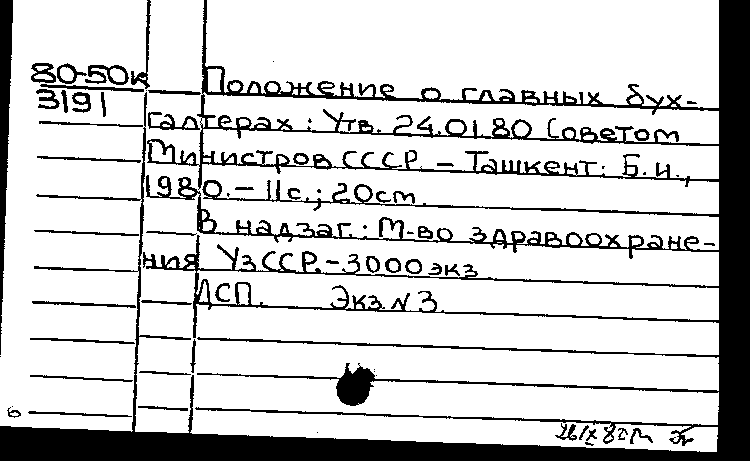 80-50к
3191
Положение о главных бух-
галтерах: Утв. 24.01.80 Советом
Министров СССР. – Ташкент: Б.и.,
1980. – 11с.; 20см.
В надзаг.: М-во здравоохране-
ния УзССР. – 3000 экз
ДСП. Экз. N 3.
6